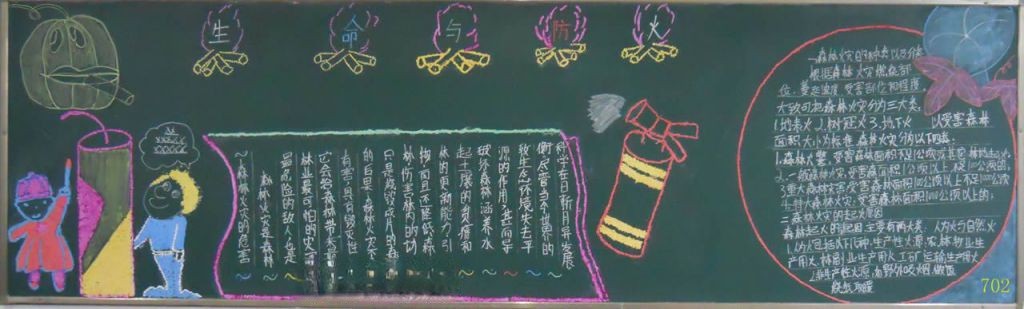 生命与防火
一森林火灾的种类以及分类
根据森林火灾燃烧部
位、蔓延速度、受害部位和程度,
大致可把森林火灾分为三大类。
1.地表火 2.树冠火 3.地下火 以受害森林
面积大小为标准 森林火灾分为以下四类:
1.森林火警,受害森林面积不足1公顷
2.一般森林火灾,受害森林面积1公顷以上
3.重大森林火灾:受害森林面积100公顷以上不足1000公顷
4.特大森林火灾:受害森林面积1000公顷以上的。
二森林火灾的起火原因
森林起火的起因主要有两大类:人为火与自然火
1.人为火包括以下几种:生产性火源:农、林、牧业生
产用火、林副业生产用火、工矿运输生产用火
2.非生产性火源:如野外吸烟、做饭
烧纸取暖
~森林火灾的危害
森林火灾是森林
最危险的敌人也是
林业最可怕的灾害
它会给森林带来
有害,具有毁灭性
的后果。森林火灾不
只是烧毁成片的森
林伤害林内的动
物而且还降低森
林的更新能力引
起土壤的贫瘠和
破坏森林涵养水
源的作用,甚而导
致生态环境失去平
衡。尽管当今世界的
科学在日新月异发展
702